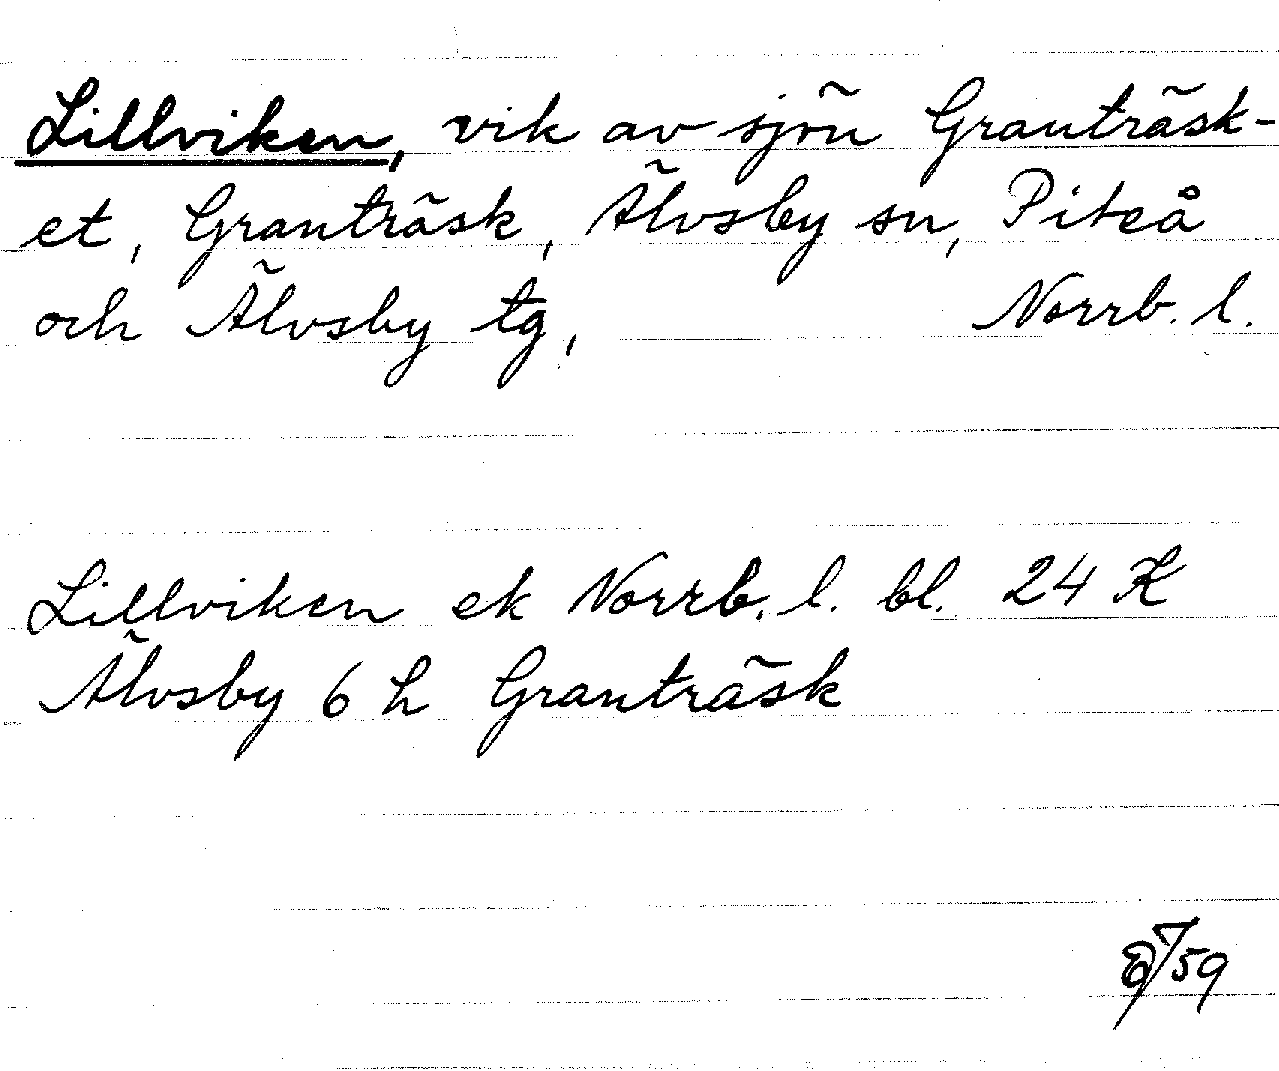 Lillviken, vik av sjön Granträsk-
et, Granträsk, Älvsby sn, Piteå
och Älvsby tg, Norrb. l.
Lillviken ek Norrb. l. bl. 24 K
Älvsby 6 h Granträsk